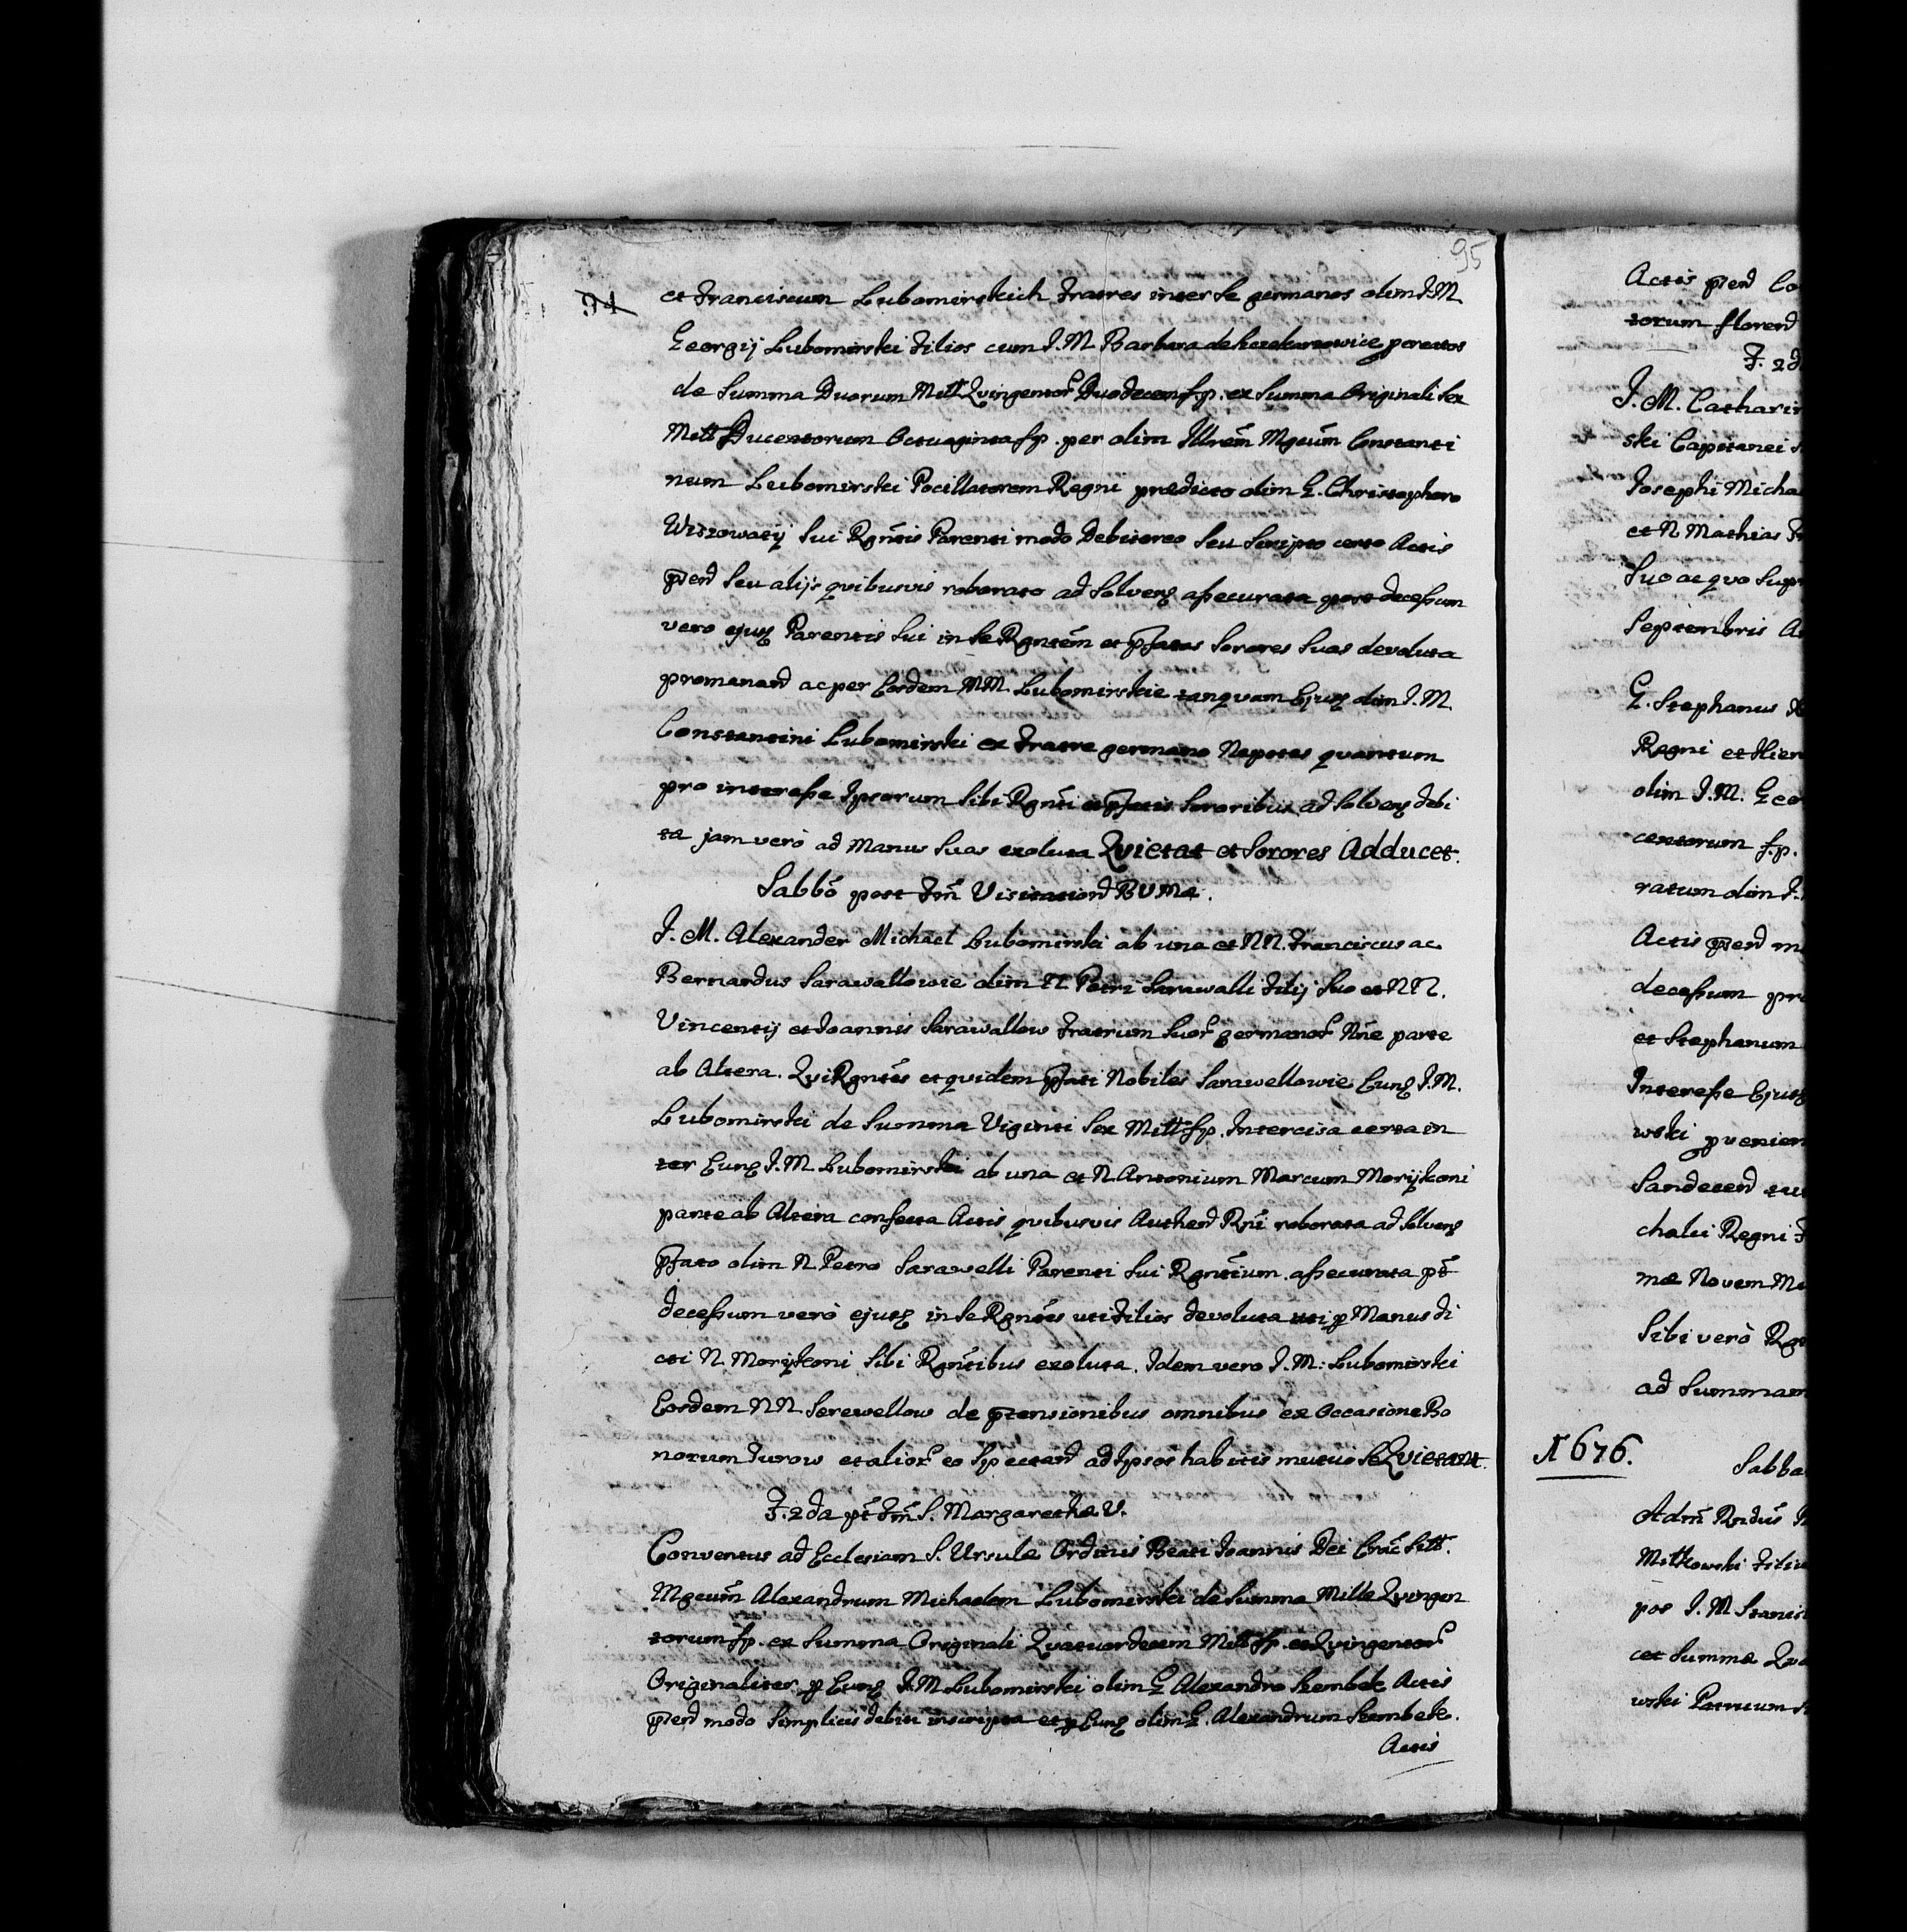 95
94
et Franciscum Lubomirskich Fratres inter Se germanos olim J. M.
Georgij Lubomirski Filios cum J. M. Barbara de procreatos
de Summa Duorum Mill Qvingentor Duodecem fp. ex Summa Originali Sex
Mill Ducentorum Octuaginta fp. per olim Illrem Mgcum Constanti
num Lubomirski Pocillatorem Regni prædicto olim G. Christophoro
Wiszowatÿ Sui Rgntis Parenti modo Debitoreo Seu Scripto certo Actis
pterd Seu alijs qvibusvis roborato ad Solvend assecurata post decessum
vero ejusd Parentis Sui in Se Rgntem et pfatas Sorores Suas devoluta
promanand ac per Eosdem MM. Lubomirskie tanqvam Ejusd olim J. M.
Constantini Lubomirski ex Fratre germano Nepotes qvantum
pro interesse Ipsorum Sibi Rgnti et pfatis Sororibus ad Solvend debi
ta jam verò ad Manus Suas exoluta Qvietat et Sorores Adducet.
Sabbō post Fm Visitationd BVMæ.
J. M. Alexander Michael Lubomirski ab una et NN. Franciscus ac
Bernardus Sarawallowie olim N Petri Sarawalli Filij Suo et NN.
Vincentij et Joannis Sarawallow Fratrum Suor germanor Nne parte
ab Altera. Qvi Rgntes et qvidem pfati Nobiles Sarawellowie Eund J. M.
Lubomirski de Summa Viginti Sex Mill fp. Intercisa certa in
ter Eund J. M. Lubomirski ab una et N. Antonium Marcum Morÿkoni
parte ab Altera confecta Actis qvibusvis Authend Rni roborata ad Solvend
pfato olim N Petro Sarawelli Parenti Sui Rgntium assecurata pt
decessum verò ejusd in Se Rgntes uti Filios devoluta uti p Manus di
cti N. Morÿkoni Sibi Rgntibus exoluta. Idem vero J. M: Lubomirski
Eosdem NN Serewellow de ptensionibus omnibus ex Occasione Bo
norum Turow et alior eo Spectand ad Ipsos habitis mutuo Se Qvietant.
F. 2da pt Fm S. Margarethæ V.
Conventus ad Ecclesiam S. Ursulæ Ordinis Beati Joannis Dei Crac Sitt.
Mgcum Alexandrum Michaelem Lubomirski de Summa Mille Qvingen
torum fp. ex Summa Originali Qvatuordecem Mill fp. et Qvingentor
Originaliter p Eund J. M Lubomirski olim G Alexandro Szembek Actis
pterd modo Simplicis debiti inscripta et p Eund olim G. Alexandrum Szembek.
Actis
Actis pterd
torum florend
F. 2d
J. M. Catharin
ski Capitanei
Josephi Micha
et N Mathias
Suo ac qvo Sup
Septembris
G. Stephanus
Regni et Hier
olim J. M. Geor
centorum fp.
ratum olim J.
Actis pterd
decessum
et Stephanum
Interesse Ejusd
wski
Sandecend
chalci Regni
mæ Novem
Sibi verò Rgn
ad Summam
1676.
Sabba
Adm Rndus
Mitkowski Filiu
pos J. M Stanis
cet Summæ
wski Patruum